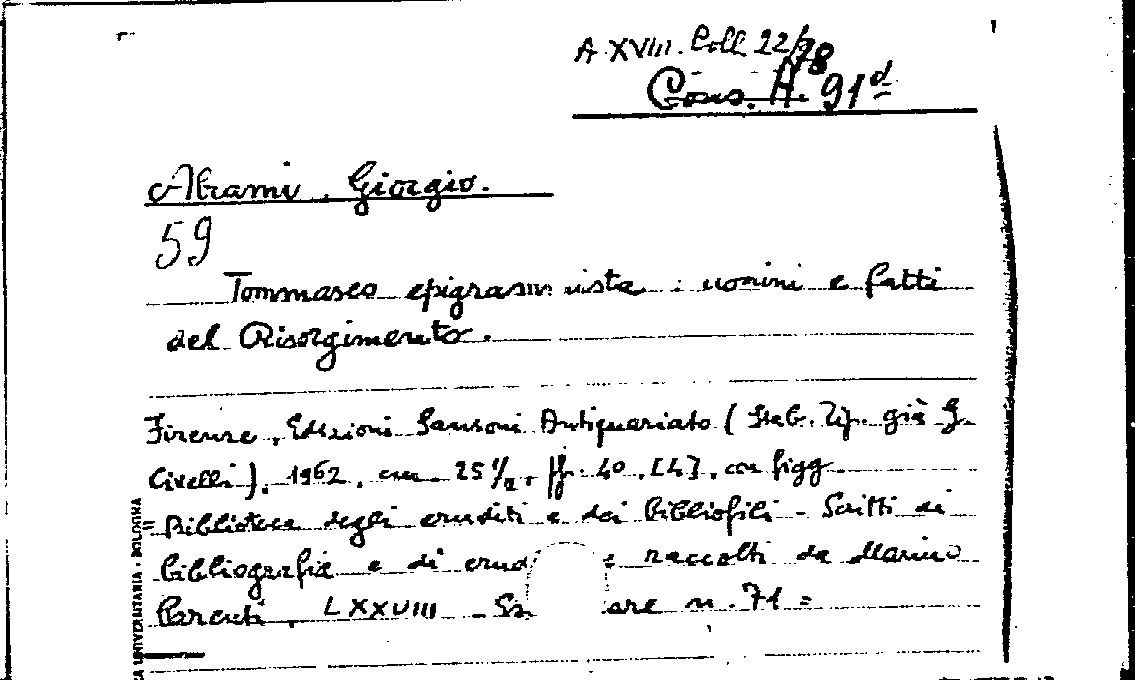 A. XVIII. Coll. 22/78
Cons. A. 91 d
Abrami, Giorgio.
59
Tommaseo epigrammista : uomini e fatti
del Risorgimento.
Firenze, Edizioni Sansoni Antiquariato (Stab. Tip. già G.
Civelli), 1962, cm. 25 1/2, ff. 40, [4], con figg.
= Biblioteca degli eruditi e dei bibliofili - Scritti di
bibliografia e di erud e raccolti da Marino
Parenti, LXXVIII - Es are n. 71 =
CA UNIVERSITARIA - BOLOGNA